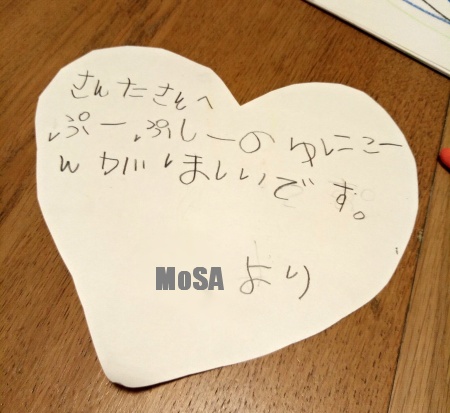 さんたさんへ
ぷーぷしーのゆにこー
んがほしいです。
MoSA より